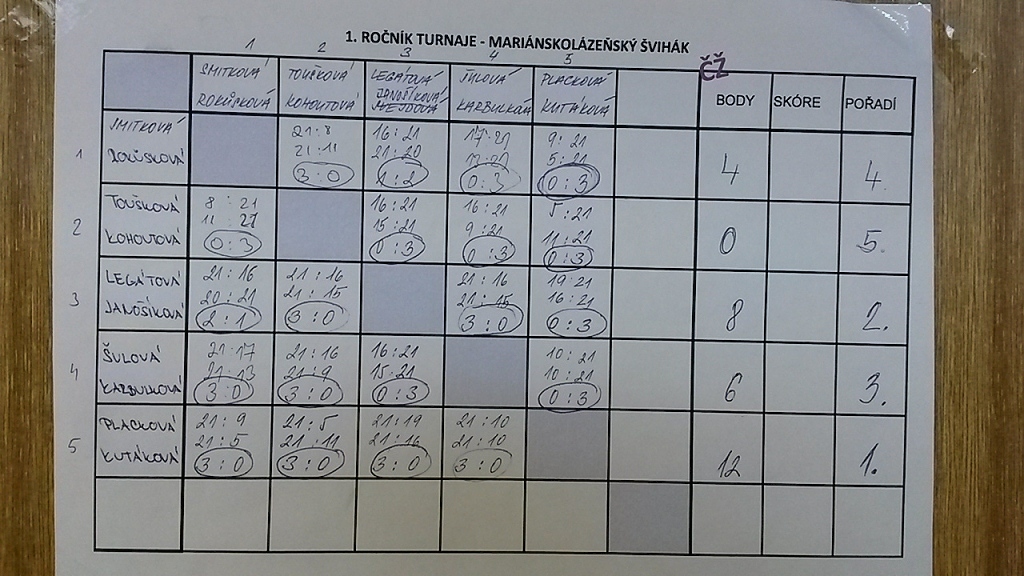 1. ROČNÍK TURNAJE - MARIÁNSKOLÁZEŇSKÝ ŠVIHÁK
1 2 3 4 5
ČŽ
SMITKOVÁ TOUŠKOVÁ LEGÁTOVÁ ŠULOVÁ PLACKOVÁ
ROKŮSKOVÁ KOHOUTOVÁ JANOŠÍKOVÁ KARBULKOVÁ KUTÁKOVÁ
BODY SKÓRE POŘADÍ
SMITKOVÁ 21:8 16:21 17:21 9:21
1 ROKŮSKOVÁ 21:11 21:20 5:21
3:0 1:2 0:3 0:3 4 4.
TOUŠKOVÁ 8:21 16:21 16:21 5:21
2 KOHOUTOVÁ 11:21 15:21 9:21 11:21
0:3 0:3 0:3 0:3 0 5.
LEGÁTOVÁ 21:16 21:16 21:16 19:21
3 JANOŠÍKOVÁ 20:21 21:15 21:15 16:21
2:1 3:0 3:0 0:3 8 2.
ŠULOVÁ 21:17 21:16 16:21 10:21
4 KARBULKOVÁ 21:13 21:9 15:21 10:21
3:0 3:0 0:3 0:3 6 3.
PLACKOVÁ 21:9 21:5 21:19 21:10
5 KUTÁKOVÁ 21:5 21:11 21:16 21:10
3:0 3:0 3:0 3:0 12 1.